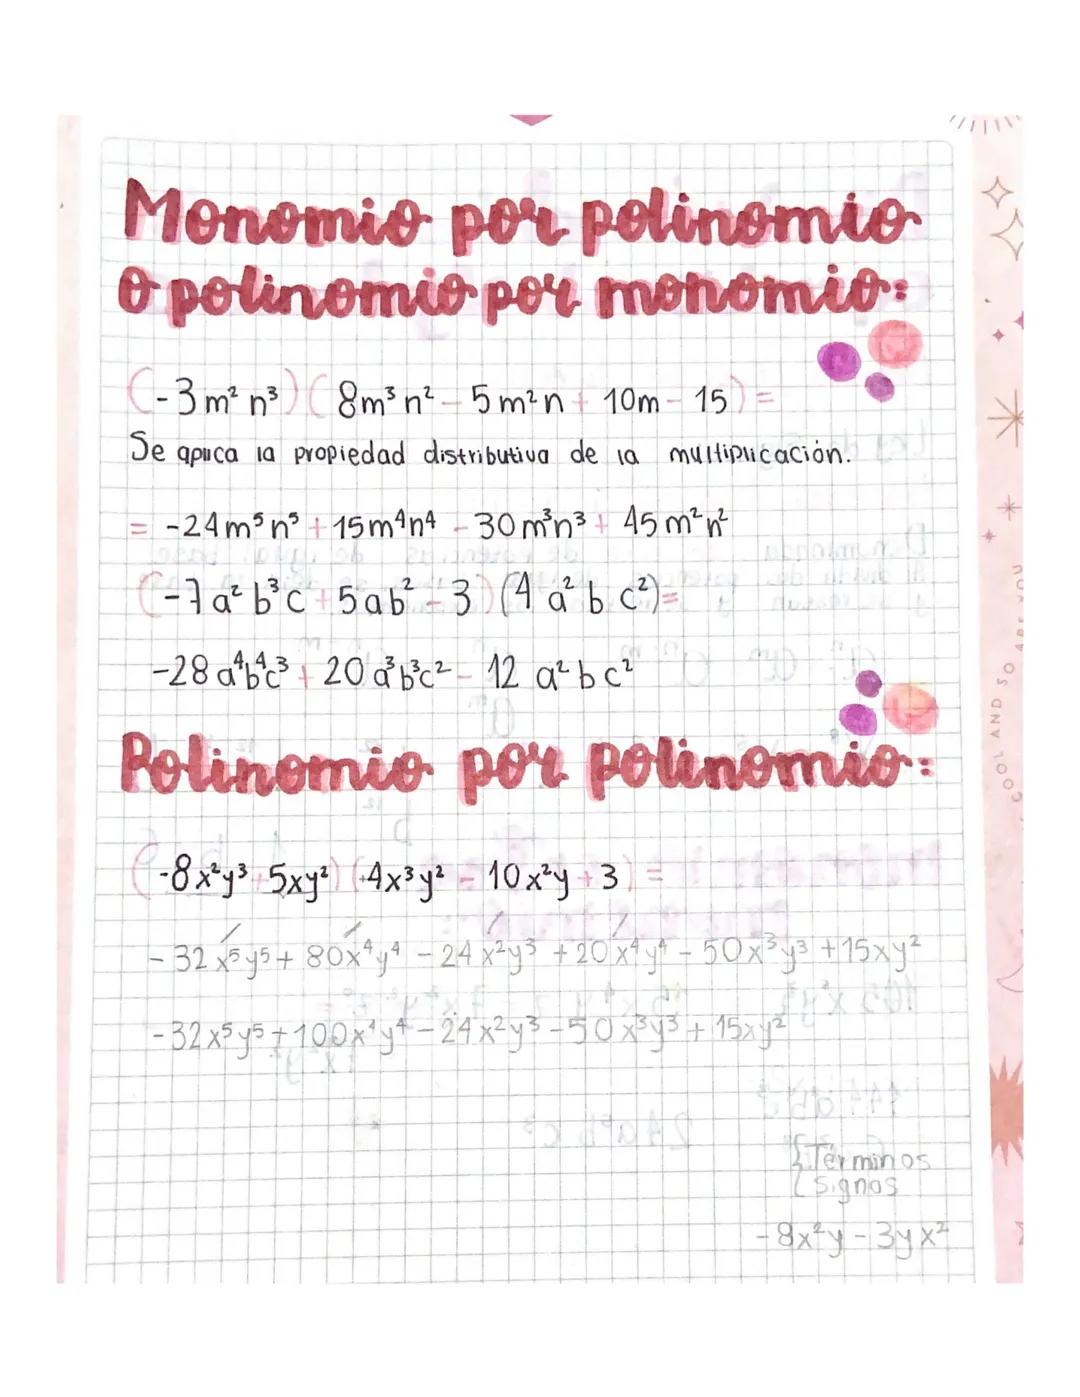 Monomio por polinomio
o polinomio por monomio:
(-3m² n³)(8m³n² - 5m²n + 10m - 15) =
Se aplica la propiedad distributiva de la multiplicación.
= -24m⁵n⁵ + 15m⁴n⁴ - 30m³n³ + 45m²n²
(-7a²b³c + 5ab² - 3)(4a²bc²) =
-28a⁴b⁴c³ + 20a³b³c² - 12a²bc²
Polinomio por polinomio:
(-8x²y³ + 5xy²)(+4x³y² - 10x²y + 3) =
-32x⁵y⁵ + 80x⁴y⁴ - 24x²y³ + 20x⁴y⁴ - 50x³y³ + 15xy²
-32x⁵y⁵ + 100x⁴y⁴ - 24x²y³ - 50x³y³ + 15xy²
{Términos
Signos
-8x²y - 3yx²
COOL AND SO ARE YOU